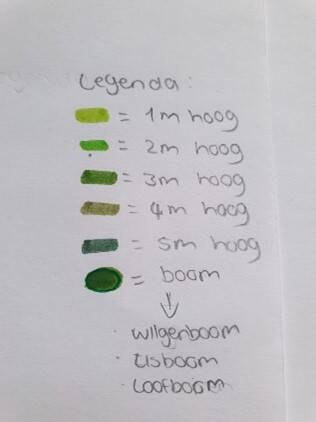 Legenda:
= 1m hoog
= 2m hoog
= 3m hoog
= 4m hoog
= 5m hoog
= boom
↓
· wilgenboom
· tisboom
· Loofboom